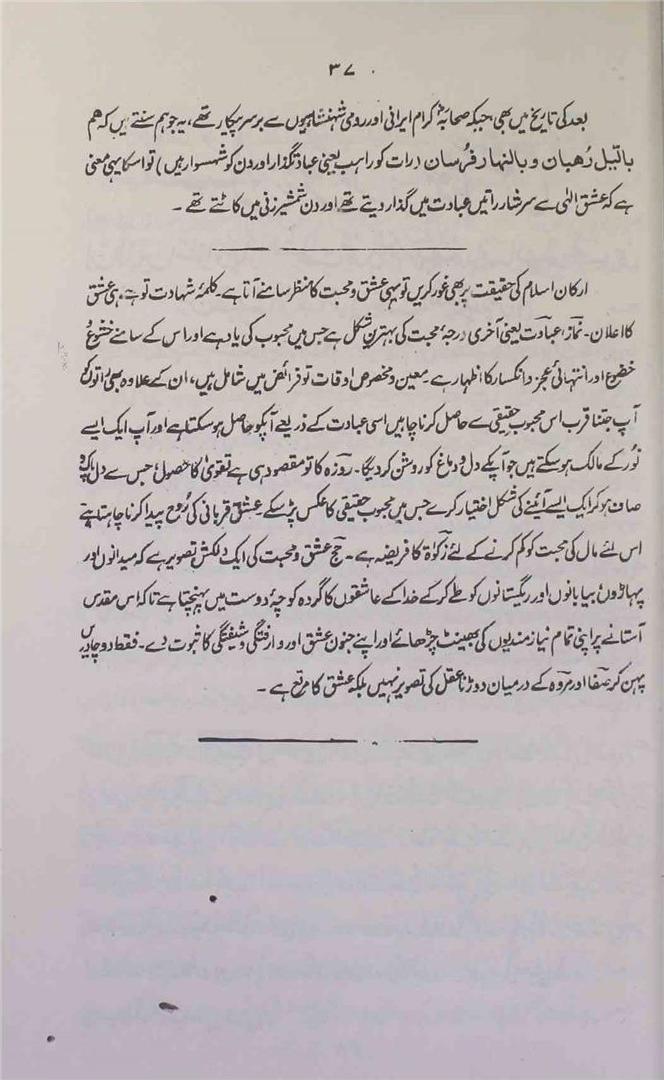 ۳۷
بعد کی تاریخ میں بھی، جبکہ صحابہؓ کرام ایرانی اور رومی شہنشاہیوں سے برسرِ پیکار تھے، یہ جو ہم سنتے ہیں کہ ھم
باتیل رُھبان و بالنھار فرُسان (رات کو راہب یعنی عبادتگذار اور دن کو شہسوار ہیں) تو اسکا یہی معنی
ہے کہ عشقِ الٰہی سے سرشار راتیں عبادت میں گذار دیتے تھے اور دن شمشیرزنی میں کاٹتے تھے ۔
ارکانِ اسلام کی حقیقت پر بھی غور کریں تو یہی عشق و محبت کا منظر سامنے آتا ہے۔ کلمۂ شہادت تو ہے ہی عشق
کا اعلان۔ نماز، عبادت یعنی آخری درجۂ محبت کی بہترین شکل ہے جس میں محبوب کی یاد ہے اور اس کے سامنے خشوع
خضوع اور انتہائی عجز و انکسار کا اظہار ہے۔ معین و مخصوص اوقات تو فرائض میں شامل ہیں، ان کے علاوہ بھی راتوں کو
آپ جتنا قرب اس محبوبِ حقیقی سے حاصل کرنا چاہیں اسی عبادت کے ذریعے آپکو حاصل ہو سکتا ہے اور آپ ایک ایسے
نُور کے مالک ہو سکتے ہیں جو آپکے دل و دماغ کو روشن کر دیگا۔ روزہ کا تو مقصود ہی ہے تقویٰ کا حصول جس سے دل پاک و
صاف ہو کر ایک ایسے آئینے کی شکل اختیار کرے جس میں محبوبِ حقیقی کا عکس پڑ سکے۔ عشق قربانی کی رُوح پیدا کرنا چاہتا ہے
اس لئے مال کی محبت کو کم کرنے کے لئے زکوٰۃ کا فریضہ ہے ۔ حج عشق و محبت کی ایک دلکش تصویر ہے کہ میدانوں اور
پہاڑوں، بیابانوں اور ریگستانوں کو طے کر کے خدا کے عاشقوں کا گروہ کوچۂ دوست میں پہنچتا ہے تاکہ اس مقدس
آستانے پر اپنی تمام نیازمندیوں کی بھینٹ چڑھائے اور اپنے جنونِ عشق اور وارفتگی و شیفتگی کا ثبوت دے۔ فقط دو چادریں
پہن کر صفا اور مروہ کے درمیان دوڑنا عقل کی تصویر نہیں بلکہ عشق کا مرقع ہے ۔